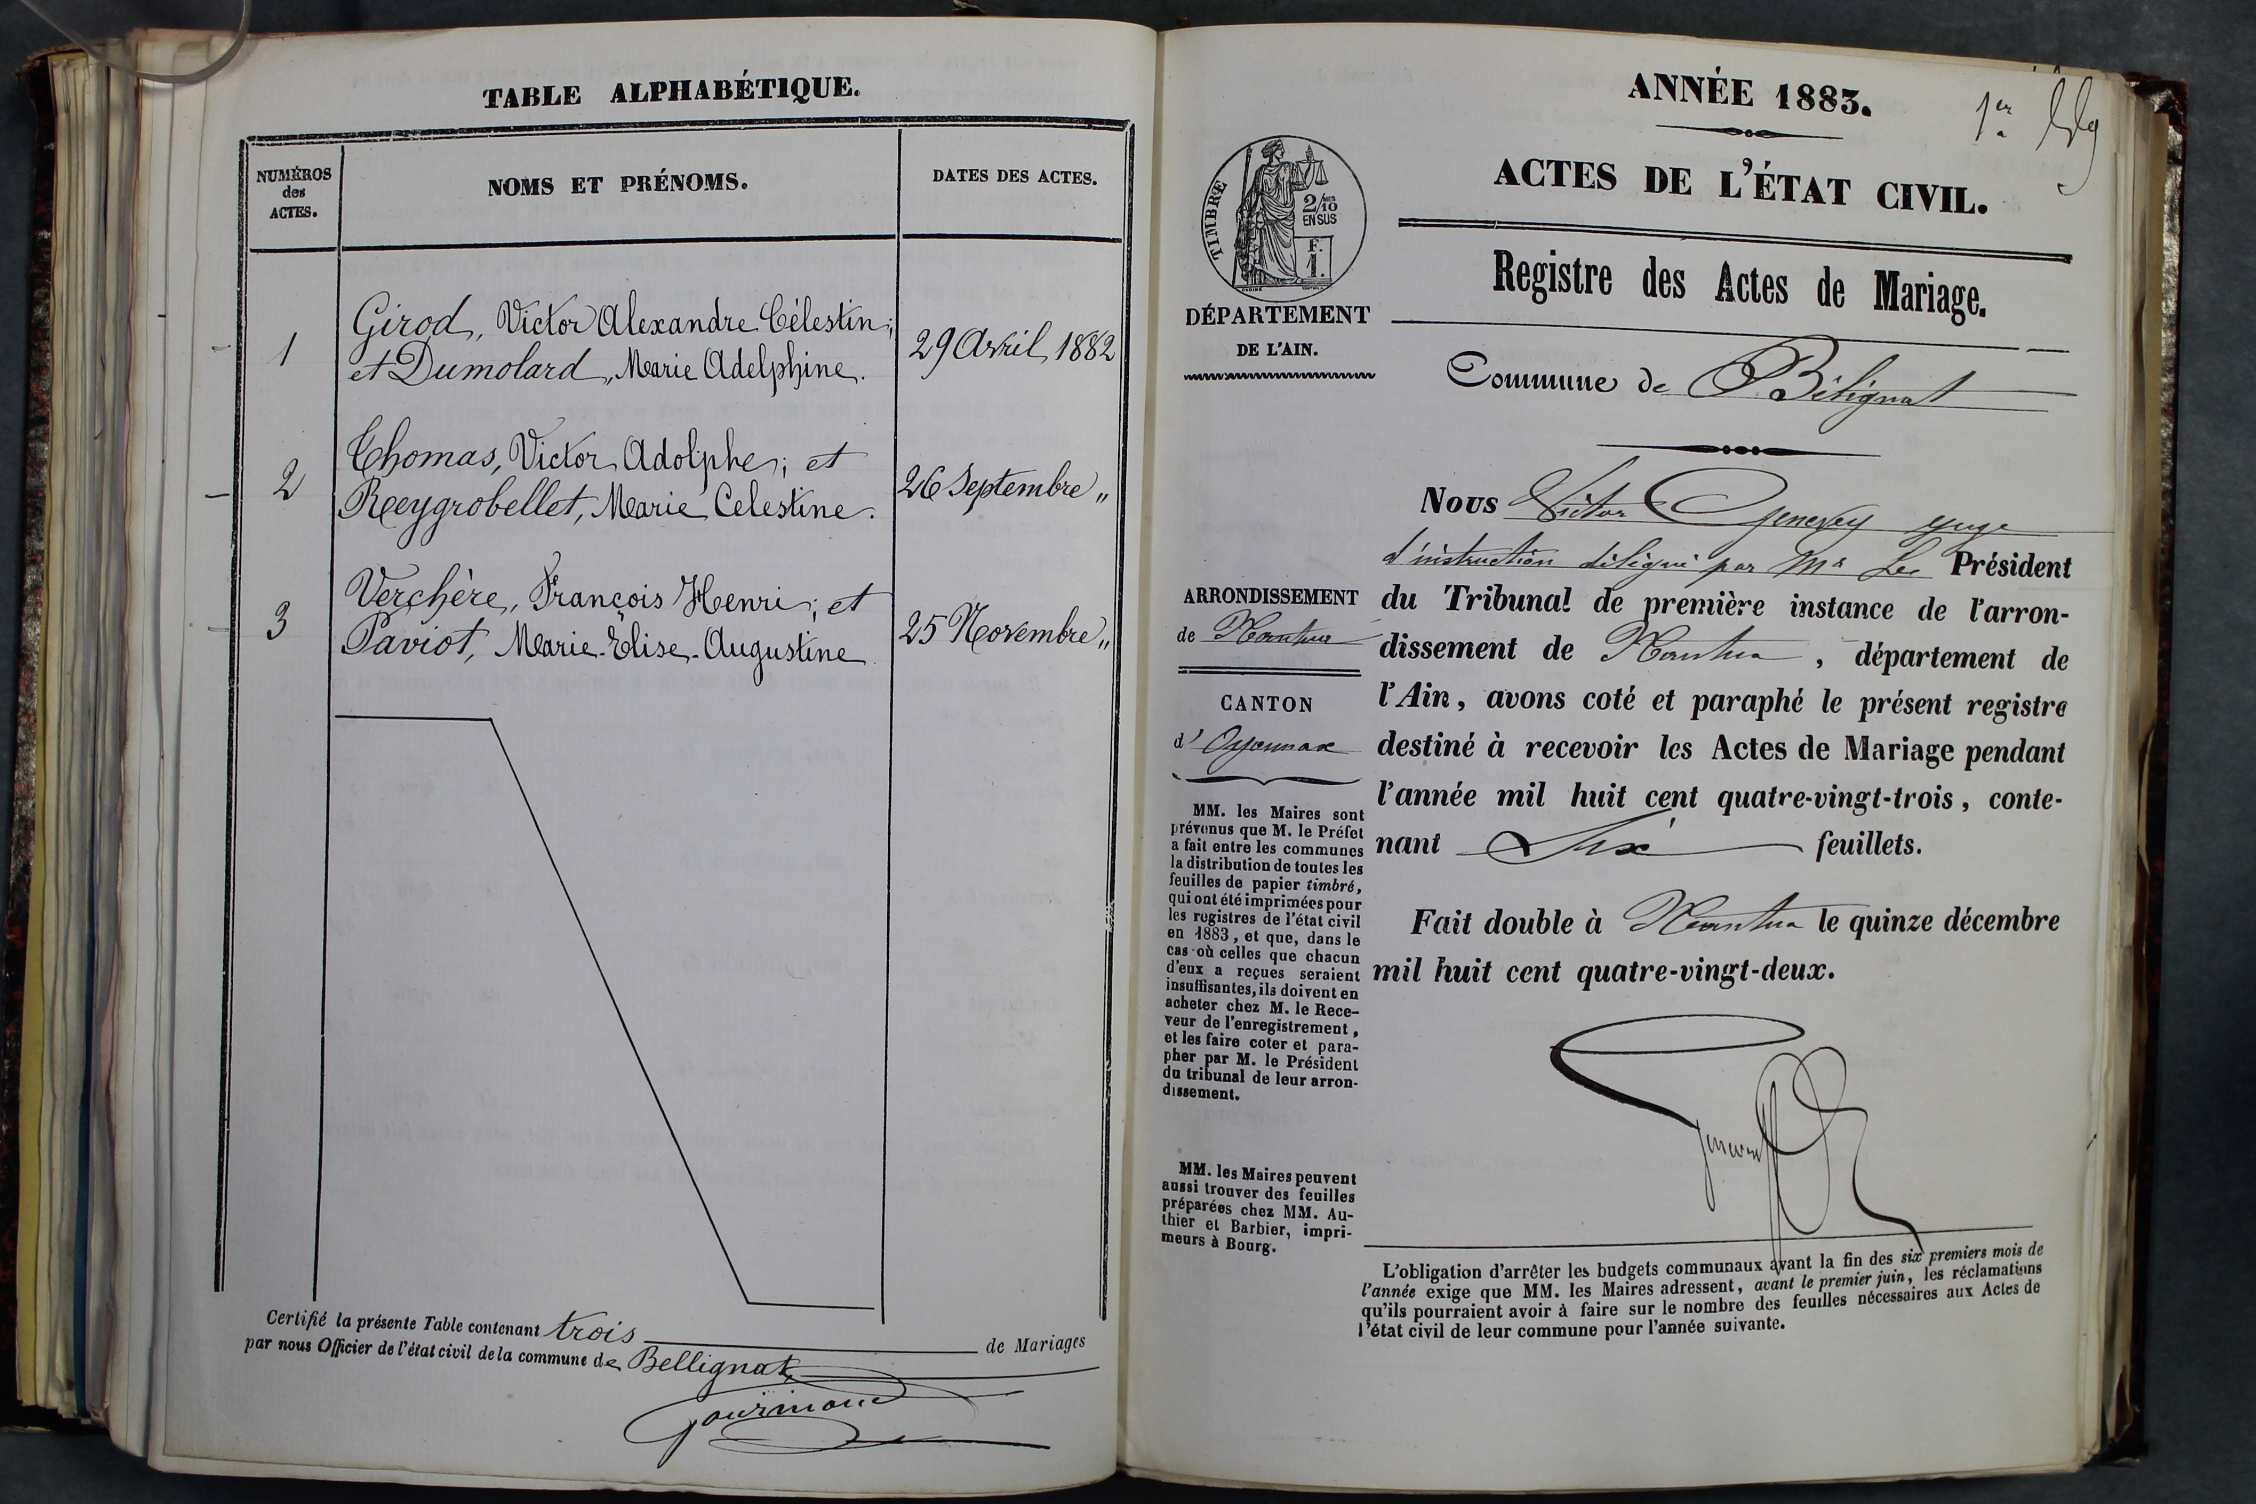 TABLE ALPHABÉTIQUE.
NUMÉROS
des
ACTES.
NOMS ET PRÉNOMS.
DATES DES ACTES.
1
Girod, Victor Alexandre Célestin;
et Dumolard, Marie Adelphine.
29 Avril 1882
2
Thomas, Victor Adolphe; et
Reygrobellet, Marie Celestine.
26 Septembre "
3
Verchère, François Henri; et
Paviot, Marie-Elise-Augustine
25 Novembre "
Certifié la présente Table contenant trois de Mariages
par nous Officier de l'état civil de la commune de Bellignat
Gourmand
ANNÉE 1883.
1er
ACTES DE L'ÉTAT CIVIL.
TIMBRE
2/10
EN SUS
F.
1.
Registre des Actes de Mariage.
DÉPARTEMENT
DE L'AIN.
Commune de Bélignat
Nous Victor Genevey juge
d'instruction délégué par Mr Le Président
du Tribunal de première instance de l'arron-
dissement de Nantua, département de
l'Ain, avons coté et paraphé le présent registre
destiné à recevoir les Actes de Mariage pendant
l'année mil huit cent quatre-vingt-trois, conte-
nant Six feuillets.
Fait double à Nantua le quinze décembre
mil huit cent quatre-vingt-deux.
ARRONDISSEMENT
de Nantua
CANTON
d'Oyonnax
MM. les Maires sont
prévenus que M. le Préfet
a fait entre les communes
la distribution de toutes les
feuilles de papier timbré,
qui ont été imprimées pour
les registres de l'état civil
en 1883, et que, dans le
cas où celles que chacun
d'eux a reçues seraient
insuffisantes, ils doivent en
acheter chez M. le Rece-
veur de l'enregistrement,
et les faire coter et para-
pher par M. le Président
du tribunal de leur arron-
dissement.
MM. les Maires peuvent
aussi trouver des feuilles
préparées chez MM. Au-
thier et Barbier, impri-
meurs à Bourg.
L'obligation d'arrêter les budgets communaux avant la fin des six premiers mois de
l'année exige que MM. les Maires adressent, avant le premier juin, les réclamations
qu'ils pourraient avoir à faire sur le nombre des feuilles nécessaires aux Actes de
l'état civil de leur commune pour l'année suivante.